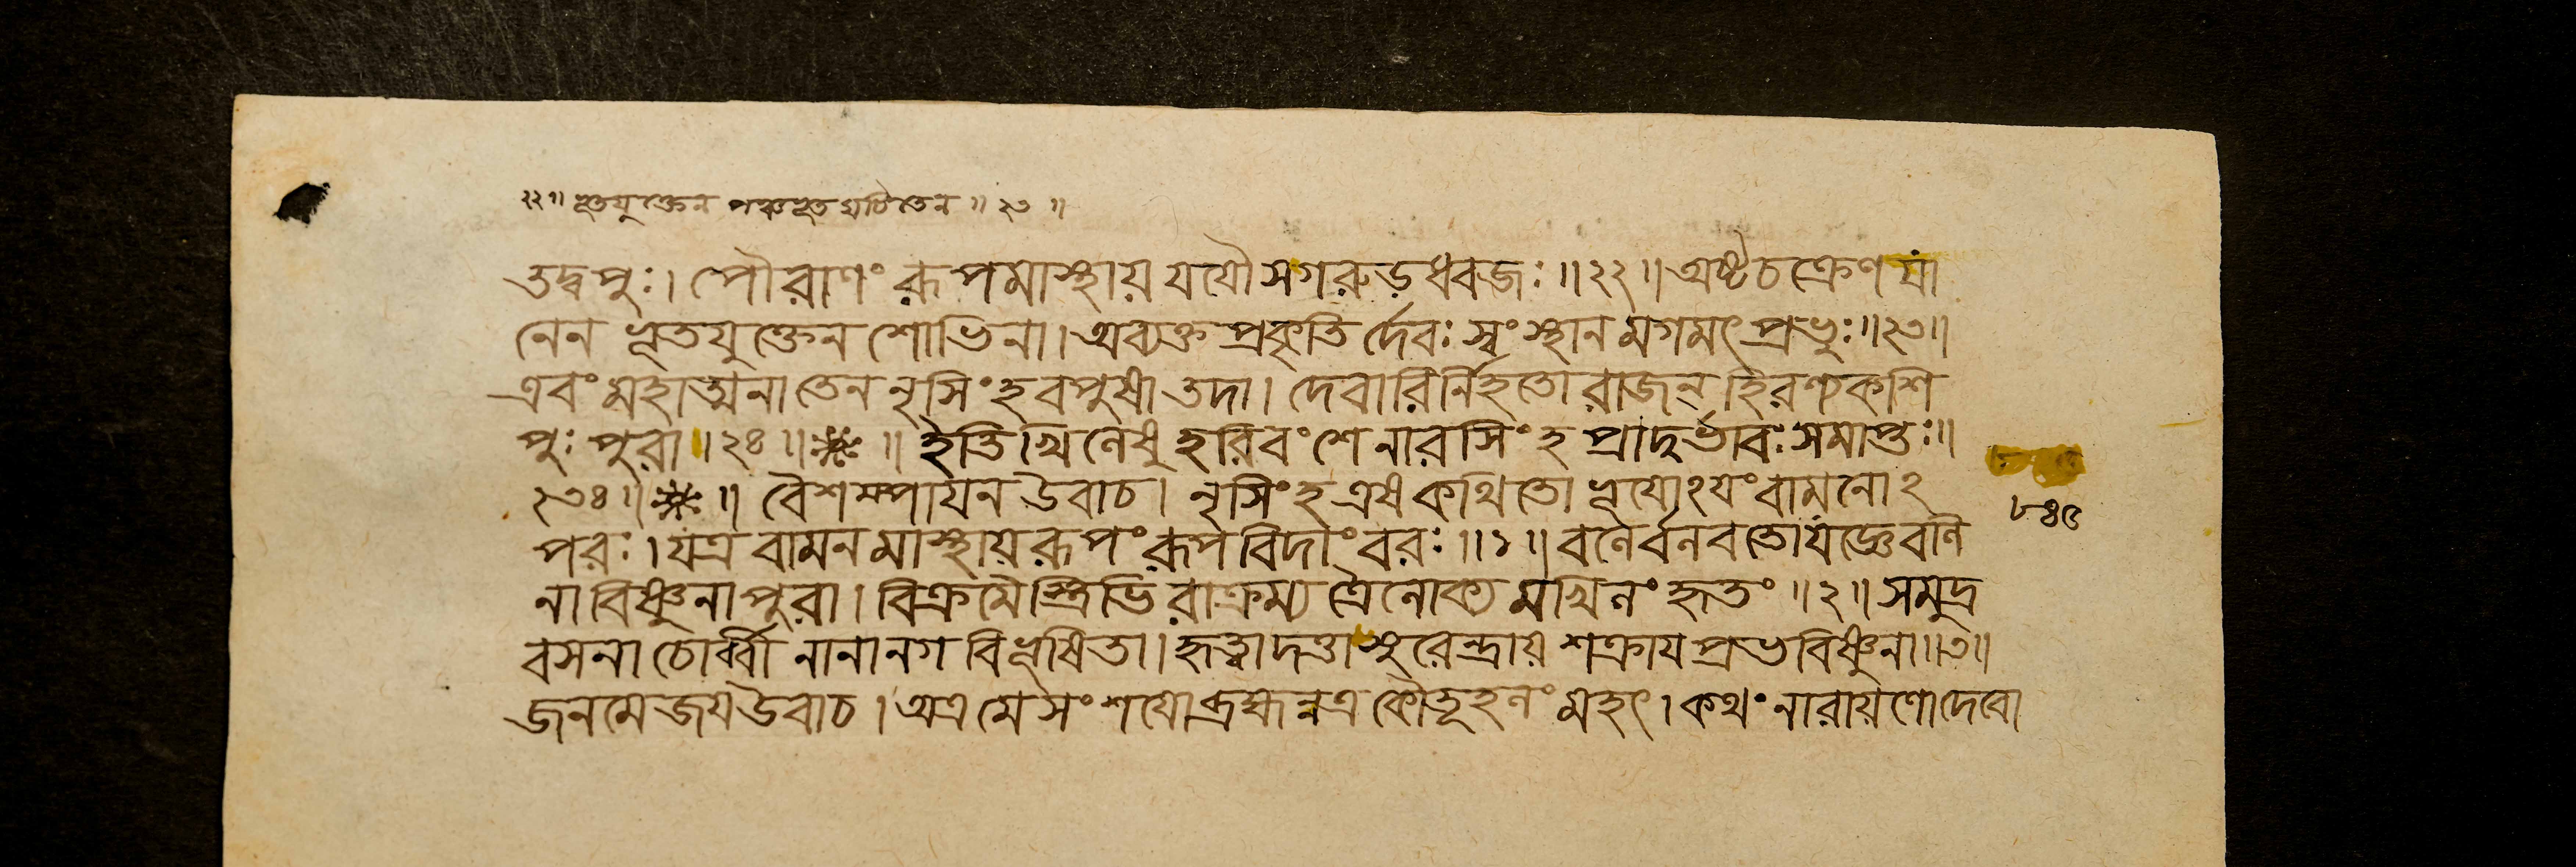 ২২॥ ভূতযুক্তেন পঞ্চভূতঘটিতেন ॥ ২৩ ॥
তদ্বপুঃ। পৌরাণং রূপমাস্থায় যযৌ স গরুড়ধ্বজঃ ॥ ২২ ॥ অষ্টচক্রেণ যা
নেন ভূতযুক্তেন শোভিনা। অব্যক্তপ্রকৃতির্দেবঃ স্বং স্থানমগমৎ প্রভুঃ ॥ ২৩ ॥
এবং মহাত্মনা তেন নৃসিংহবপুষা তদা। দেবারির্নিহতো রাজন্ হিরণ্যকশি
পুঃ পুরা ॥ ২৪ ॥ ※ ॥ ইতি খিলেষু হরিবংশে নারসিংহপ্রাদুর্ভাবঃ সমাপ্তঃ ॥
২৩৪ ॥ ※ ॥ বৈশম্পায়ন উবাচ। নৃসিংহ এষ কথিতো ভূয়োঽয়ং বামনোঽ
পরঃ। যত্র বামনমাস্থায় রূপং রূপবিদাং বরঃ ॥ ১ ॥ বলের্বলবতো যজ্ঞে বলি
না বিষ্ণুনা পুরা। বিক্রমৈস্ত্রিভিরাক্রম্য ত্রৈলোক্যমখিলং হৃতং ॥ ২ ॥ সমুদ্র
বসনা চোর্ব্বী নানানগবিভূষিতা। হৃত্বা দত্তা সুরেন্দ্রায় শক্রায় প্রভবিষ্ণুনা ॥ ৩ ॥
জনমেজয় উবাচ। অত্র মে সংশয়ো ব্রহ্মন্নত্র কৌতূহলং মহৎ। কথং নারায়ণো দেবো
৮৪৫